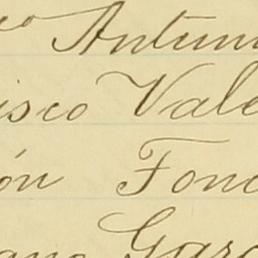 co Antun
isco Vale
ón Fon
ano Garc